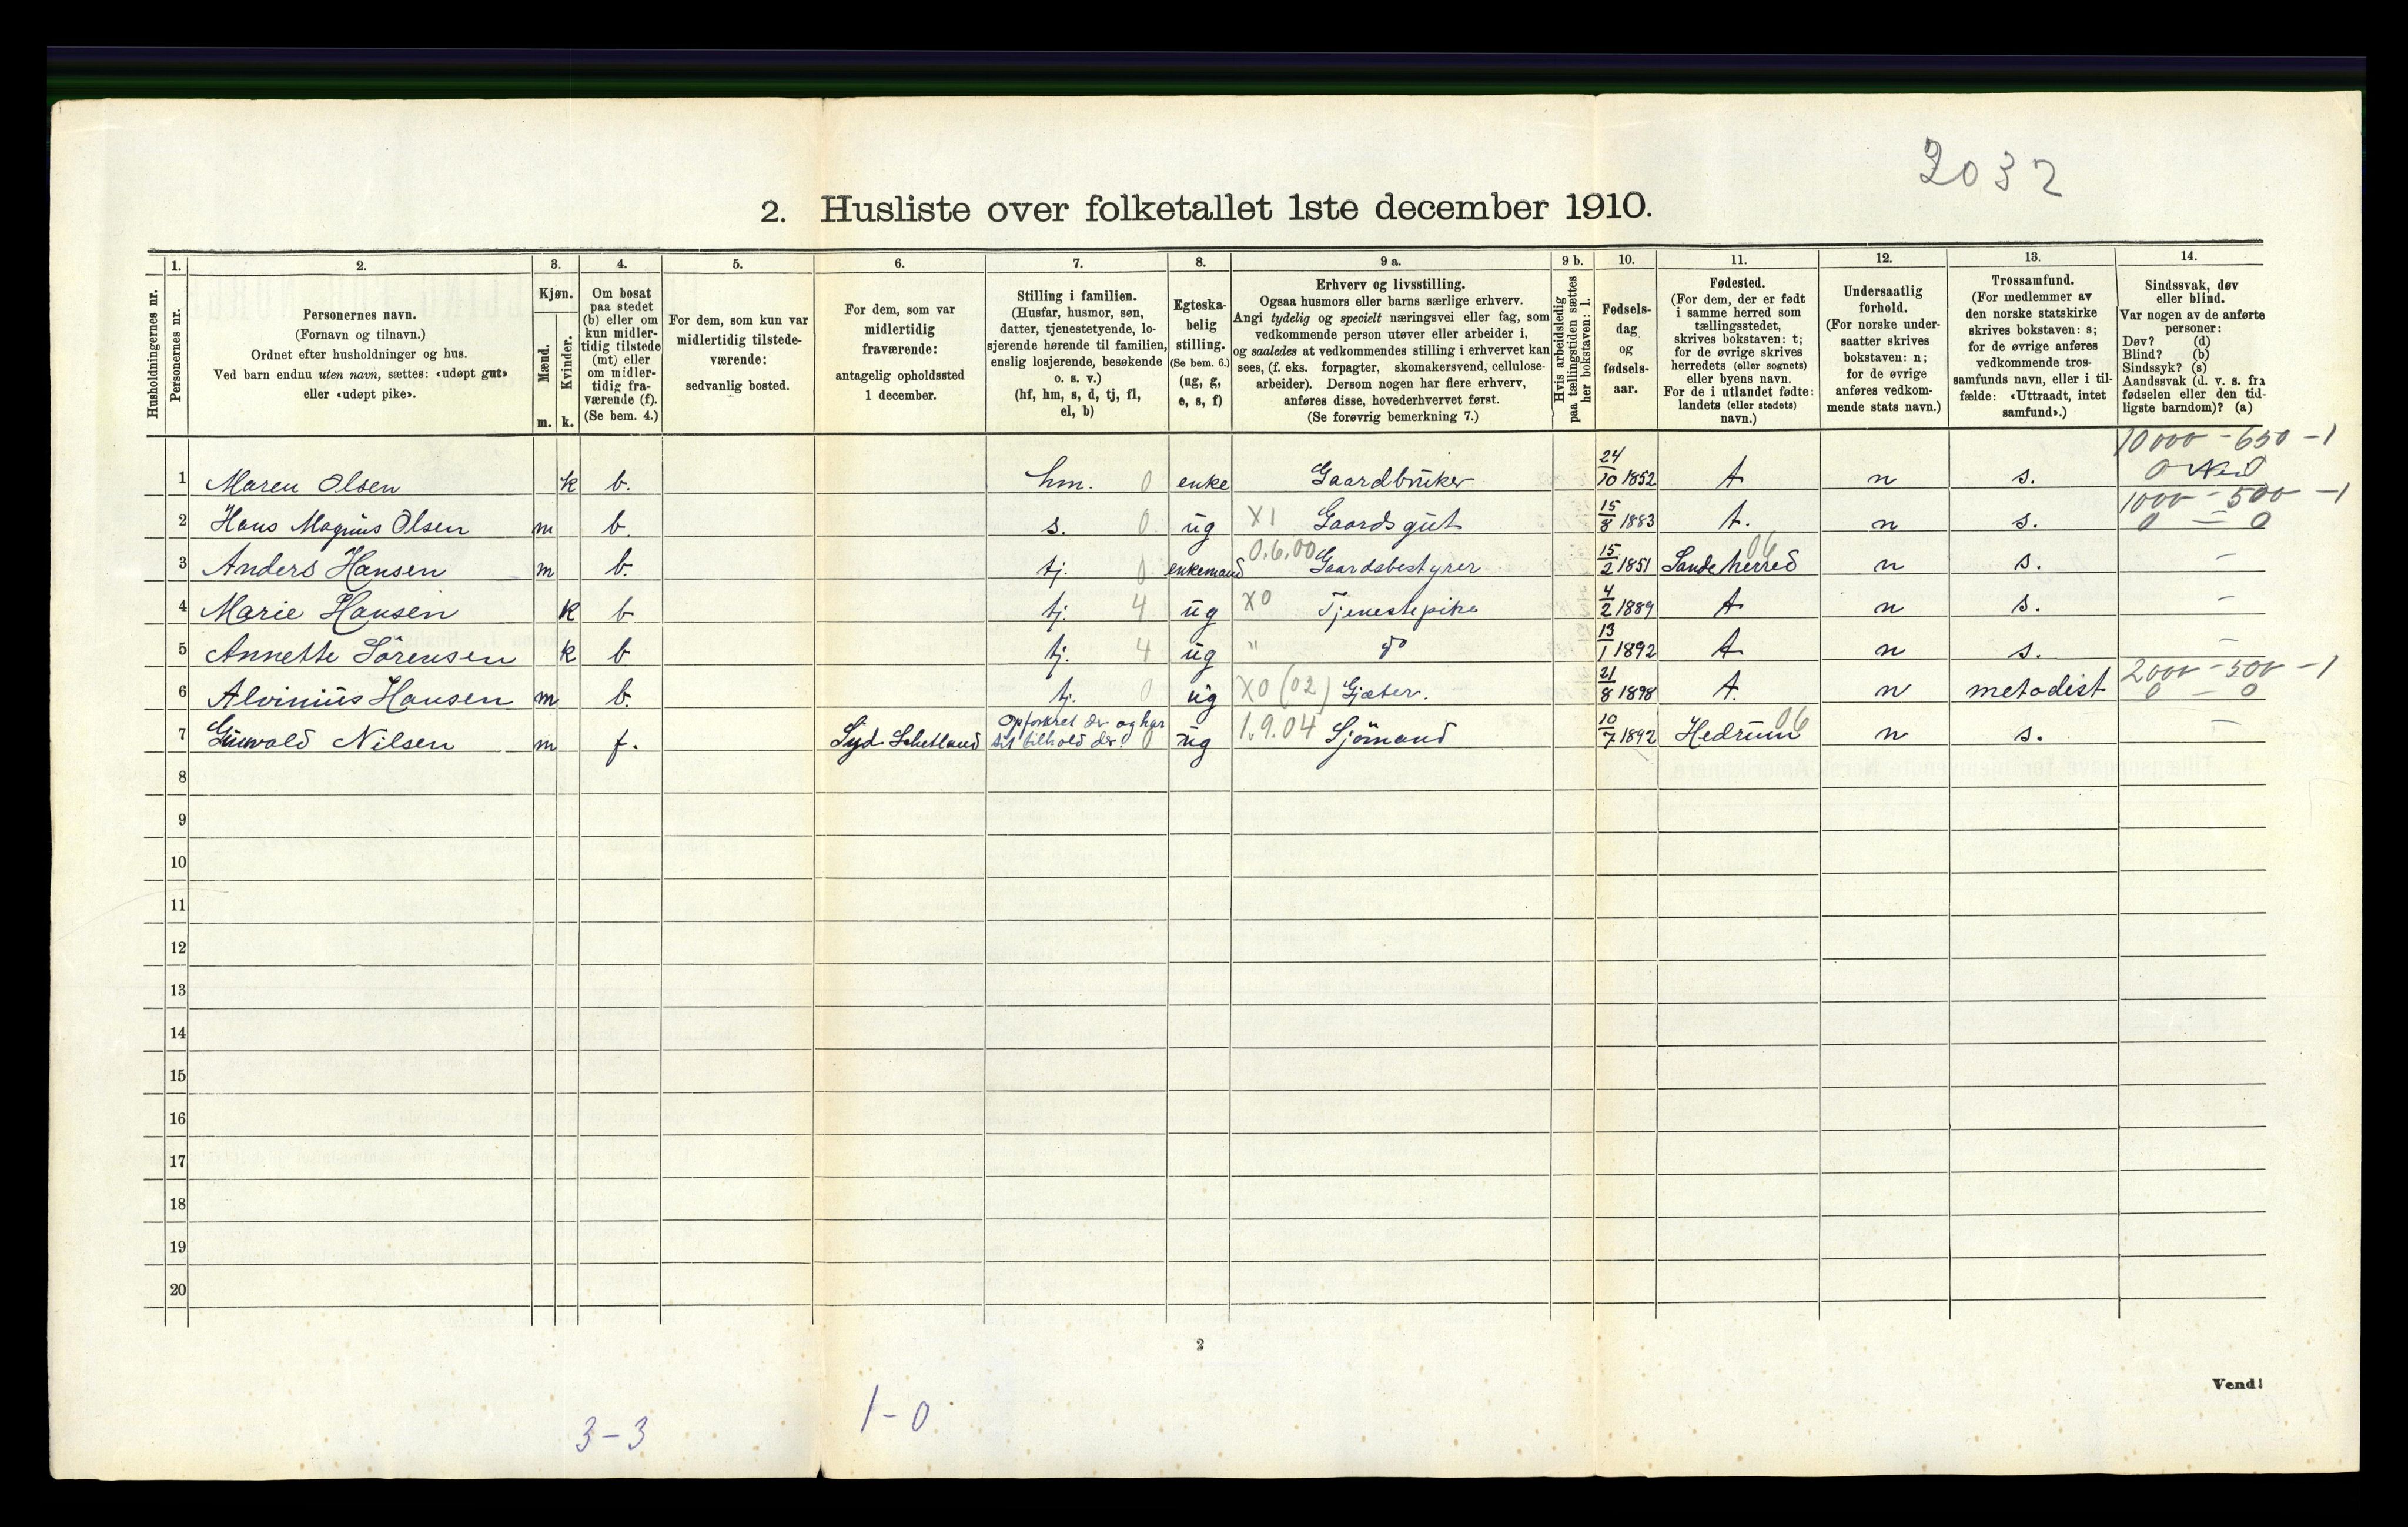 2032
2. Husliste over folketallet 1ste december 1910.
Husholdningernes nr.
1.
Personernes nr.
2.
Personernes navn.
(Fornavn og tilnavn.)
Ordnet efter husholdninger og hus.
Ved barn endnu uten navn, sættes: «udøpt gut»
eller «udøpt pike».
3.
Kjøn.
Mænd.
Kvinder.
m. k.
4.
Om bosat
paa stedet
(b) eller om
kun midler-
tidig tilstede
(mt) eller
om midler-
tidig fra-
værende (f).
(Se bem. 4.)
5.
For dem, som kun var
midlertidig tilstede-
værende:
sedvanlig bosted.
6.
For dem, som var
midlertidig
fraværende:
antagelig opholdssted
1 december.
7.
Stilling i familien.
(Husfar, husmor, søn,
datter, tjenestetyende, lo-
sjerende hørende til familien,
enslig losjerende, besøkende
o. s. v.)
(hf, hm, s, d, tj, fl,
el, b)
8.
Egteska-
belig
stilling.
(Se bem. 6.)
(ug, g,
e, s, f)
9 a.
Erhverv og livsstilling.
Ogsaa husmors eller barns særlige erhverv.
Angi tydelig og specielt næringsvei eller fag, som
vedkommende person utøver eller arbeider i,
og saaledes at vedkommendes stilling i erhvervet kan
sees, (f. eks. forpagter, skomakersvend, cellulose-
arbeider). Dersom nogen har flere erhverv,
anføres disse, hovederhvervet først.
(Se forøvrig bemerkning 7.)
9 b.
Hvis arbeidsledig
paa tællingstiden sættes
her bokstaven: l.
10.
Fødsels-
dag
og
fødsels-
aar.
11.
Fødested.
(For dem, der er født
i samme herred som
tællingsstedet,
skrives bokstaven: t;
for de øvrige skrives
herredets (eller sognets)
eller byens navn.
For de i utlandet fødte:
landets (eller stedets)
navn.)
12.
Undersaatlig
forhold.
(For norske under-
saatter skrives
bokstaven: n;
for de øvrige
anføres vedkom-
mende stats navn.)
13.
Trossamfund.
(For medlemmer av
den norske statskirke
skrives bokstaven: s;
for de øvrige anføres
vedkommende tros-
samfunds navn, eller i til-
fælde: «Uttraadt, intet
samfund».)
14.
Sindssvak, døv
eller blind.
Var nogen av de anførte
personer:
Døv? (d)
Blind? (b)
Sindssyk? (s)
Aandssvak (d. v. s. fra
fødselen eller den tid-
ligste barndom)? (a)
10000 - 650 - 1
1 Maren Olsen k b. hm. 0 enke Gaardbruker 24/10 1852 t n s. 0 0
1000 - 500 - 1
2 Hans Magnus Olsen m b. s. 0 ug X1 Gaardsgut 15/8 1883 t. n s. 0 — 0
3 Anders Hansen m b. tj. 0 enkemand 0.6.00 Gaardsbestyrer 15/2 1851 Sandeherred 06 n s. —
4 Marie Hansen k b tj. 4 ug X0 Tjenestepike 4/2 1889 t n s. —
5 Annette Sörensen k b tj. 4 ug " do 13/1 1892 t n s. —
2000 - 500 - 1
6 Alvinius Hansen m b. tj. 0 ug X0 (02) Gjæter. 21/8 1898 t. n metodist 0 — 0
7 Nilsen m f. Syd Schetland Opfostret der og har sit tilhold der. 0 ug 1.9.04 Sjömand 10/7 1892 Hedrum 06 n s. —
8
9
10
11
12
13
14
15
16
17
18
19
20
2
Vend!
3-3
1-0